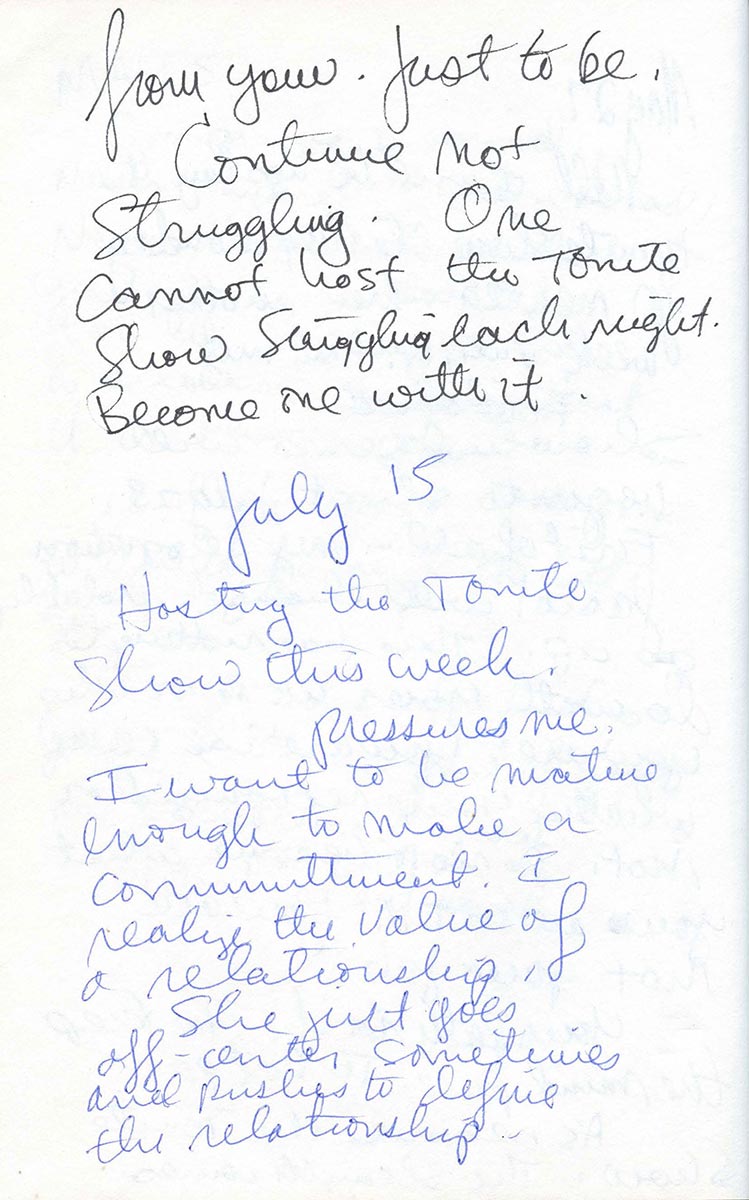 from your. Just to be.
Continue not
Struggling. One
Cannot host the Tonite
Show Struggling each night.
Become one with it.
July 15
Hosting the Tonite
Show this week.
pressures me.
I want to be mature
enough to make a
committment. I
realize the value of
a relationship.
She just goes
off-center sometimes
and pushes to define
the relationship.